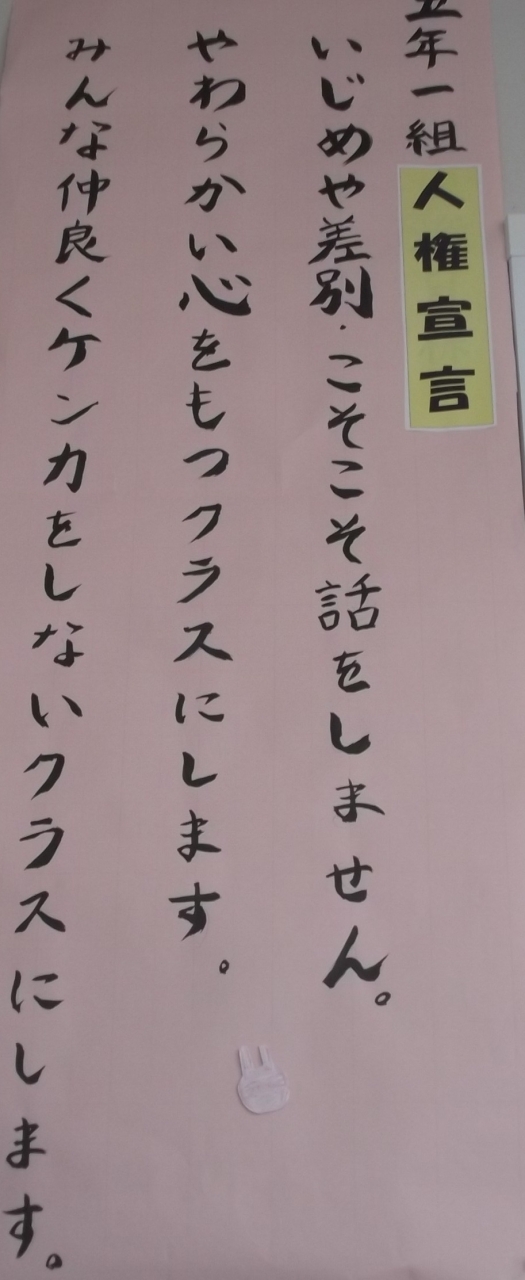 五年一組 人権宣言
いじめや差別・こそこそ話をしません。
やわらかい心をもつクラスにします。
みんな仲良くケンカをしないクラスにします。